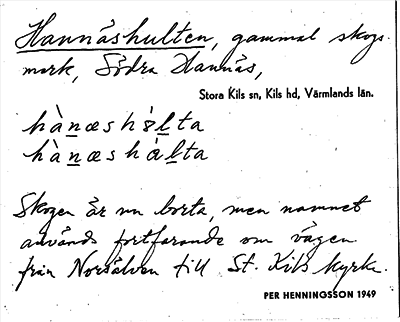 Hannäshulten, gammal skogs-
mark, Södra Hannäs,
Stora Kils sn, Kils hd, Värmlands län.
hànæshòlta
hànæshàlta
Skogen är nu borta, men namnet
används fortfarande om vägen
från Norsälven till St. Kils kyrka.
PER HENNINGSSON 1949